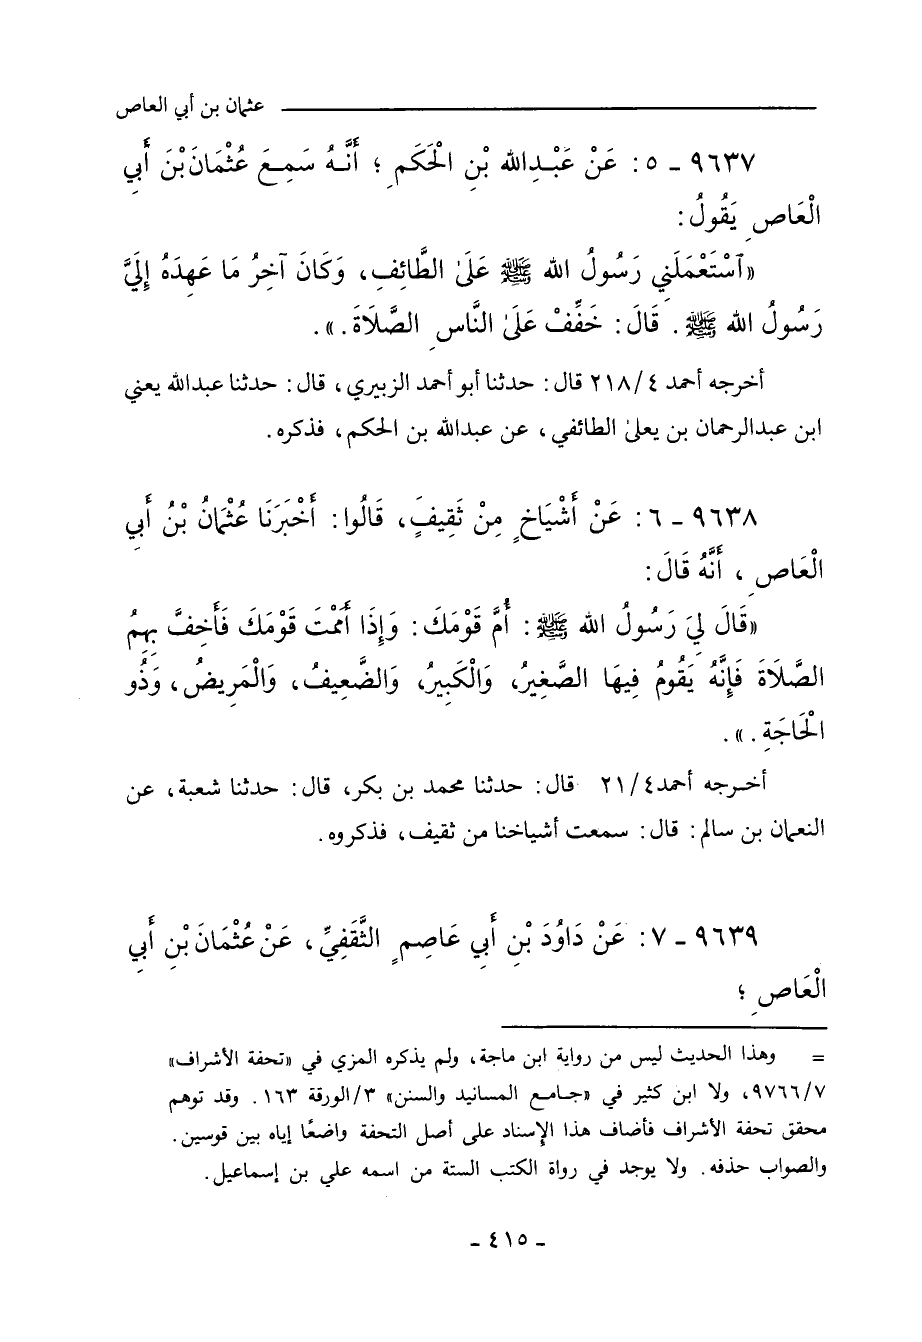 عثمان بن أبي العاص
٩٦٣٧ ـ ٥: عَنْ عَبْدِالله بْنِ الْحَكَمِ؛ أَنَّهُ سَمِعَ عُثْمَانَ بْنَ أَبِي
الْعَاصِ يَقُولُ:
«اَسْتَعْمَلَنِي رَسُولُ الله ﷺ عَلَىٰ الطَّائِفِ، وَكَانَ آخِرُ مَا عَهِدَهُ إِلَيَّ
رَسُولُ الله ﷺ. قَالَ: خَفِّفْ عَلَىٰ النَّاسِ الصَّلَاةَ.».
أخرجه أحمد ٢١٨/٤ قال: حدثنا أبو أحمد الزبيري، قال: حدثنا عبدالله يعني
ابن عبدالرحمان بن يعلىٰ الطائفي، عن عبدالله بن الحكم، فذكره.
٩٦٣٨ ـ ٦: عَنْ أَشْيَاخٍ مِنْ ثَقِيفٍ، قَالُوا: أَخْبَرَنَا عُثْمَانُ بْنُ أَبِي
الْعَاصِ، أَنَّهُ قَالَ:
«قَالَ لِيَ رَسُولُ الله ﷺ: أُمَّ قَوْمَكَ: وَإِذَا أَمَمْتَ قَوْمَكَ فَأَخِفَّ بِهِمُ
الصَّلَاةَ فَإِنَّهُ يَقُومُ فِيهَا الصَّغِيرُ، وَالْكَبِيرُ، وَالضَّعِيفُ، وَالْمَرِيضُ، وَذُو
الْحَاجَةِ.».
أخرجه أحمد٢١/٤ قال: حدثنا محمد بن بكر، قال: حدثنا شعبة، عن
النعمان بن سالم: قال: سمعت أشياخنا من ثقيف، فذكروه.
٩٦٣٩ ـ ٧: عَنْ دَاوُدَ بْنِ أَبِي عَاصِمٍ الثَّقَفِيِّ، عَنْ عُثْمَانَ بْنِ أَبِي
الْعَاصِ؛
= وهذا الحديث ليس من رواية ابن ماجة، ولم يذكره المزي في «تحفة الأشراف»
٩٧٦٦/٧، ولا ابن كثير في «جامع المسانيد والسنن» ٣/الورقة ١٦٣. وقد توهم
محقق تحفة الأشراف فأضاف هذا الإسناد على أصل التحفة واضعًا إياه بين قوسين.
والصواب حذفه. ولا يوجد في رواة الكتب الستة من اسمه علي بن إسماعيل.
ـ ٤١٥ ـ